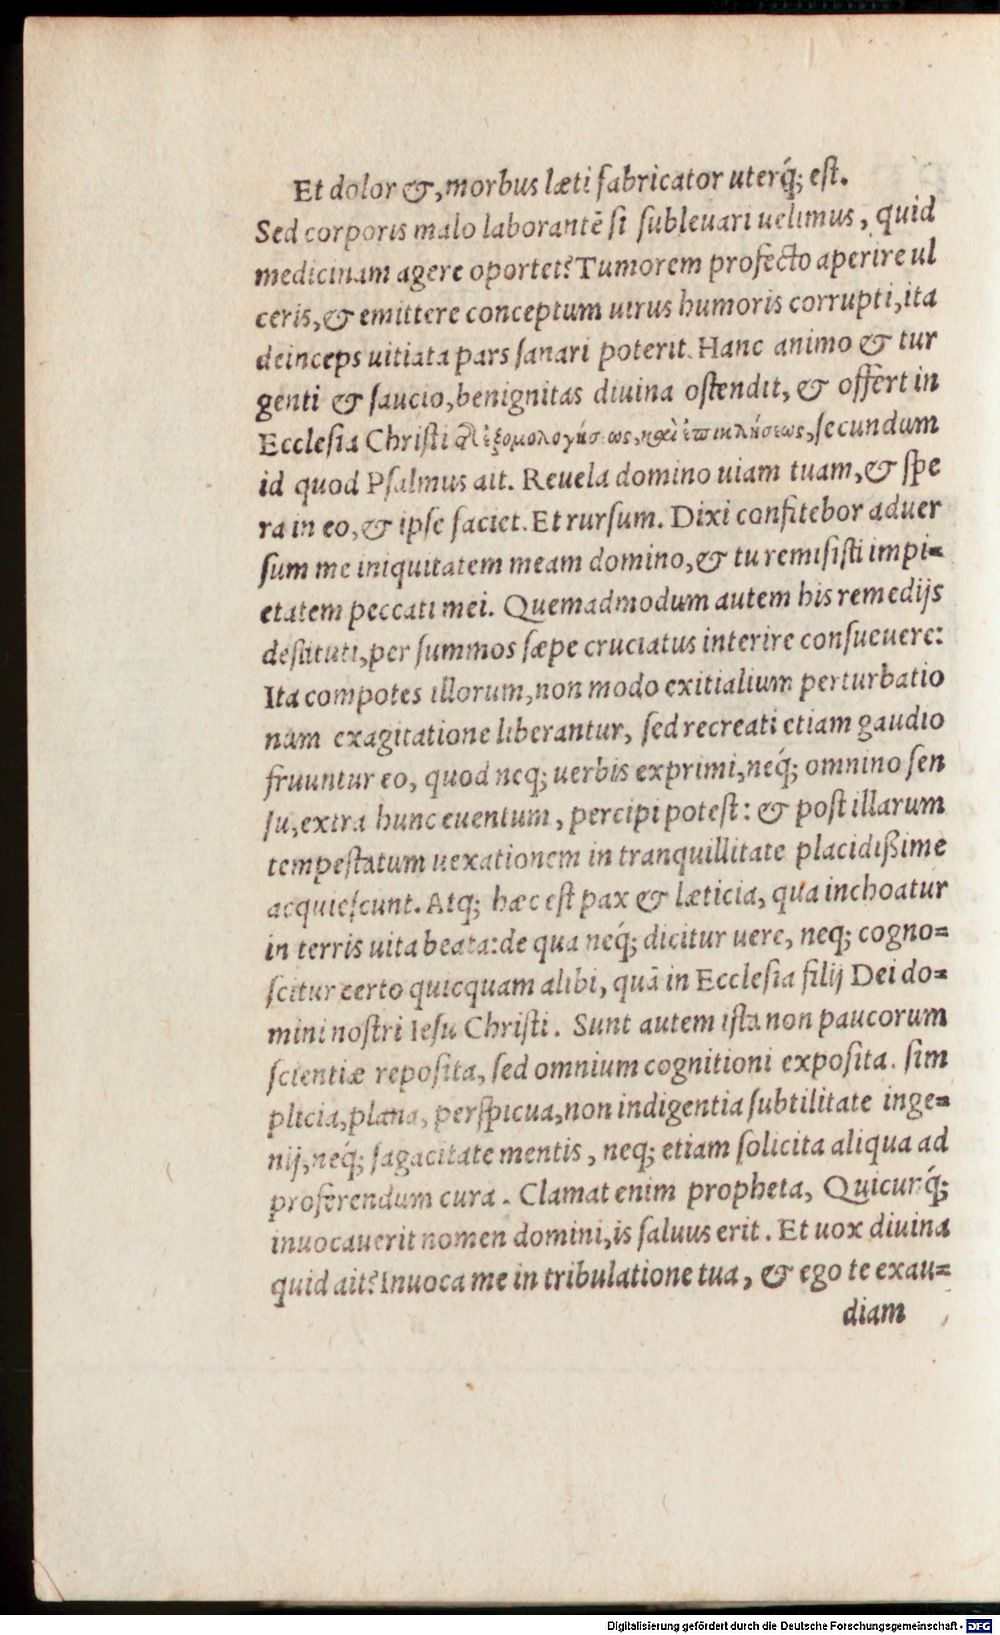 Et dolor &, morbus læti fabricator uterq́; est.
Sed corporis malo laborantē si subleuari uelimus, quid
medicinam agere oportet? Tumorem profecto aperire ul
ceris, & emittere conceptum uirus humoris corrupti, ita
deinceps uitiata pars sanari poterit. Hanc animo & tur
genti & saucio, benignitas diuina ostendit, & offert in
Ecclesia Christi ἐξομολογήσεως, καὶ ἐπικλήσεως, secundum
id quod Psalmus ait. Reuela domino uiam tuam, & spe
ra in eo, & ipse faciet. Et rursum. Dixi confitebor aduer
sum me iniquitatem meam domino, & tu remisisti impi=
etatem peccati mei. Quemadmodum autem his remedijs
destituti, per summos sæpe cruciatus interire consueuere:
Ita compotes illorum, non modo exitialium perturbatio
num exagitatione liberantur, sed recreati etiam gaudio
fruuntur eo, quod neq; uerbis exprimi, neq́; omnino sen
su, extra hunc euentum, percipi potest: & post illarum
tempestatum uexationem in tranquillitate placidißime
acquiescunt. Atq; hæc est pax & læticia, qua inchoatur
in terris uita beata: de qua neq́; dicitur uere, neq; cogno=
scitur certo quicquam alibi, quā in Ecclesia filij Dei do=
mini nostri Iesu Christi. Sunt autem ista non paucorum
scientiæ reposita, sed omnium cognitioni exposita. sim
plicia, plana, perspicua, non indigentia subtilitate inge=
nij, neq́; sagacitate mentis, neq; etiam solicita aliqua ad
proferendum cura. Clamat enim propheta, Quicunq́;
inuocauerit nomen domini, is saluus erit. Et uox diuina
quid ait? Inuoca me in tribulatione tua, & ego te exau=
diam
Digitalisierung gefördert durch die Deutsche Forschungsgemeinschaft - DFG